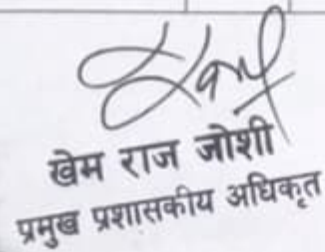 खेम राज जोशी
प्रमुख प्रशासकीय अधिकृत